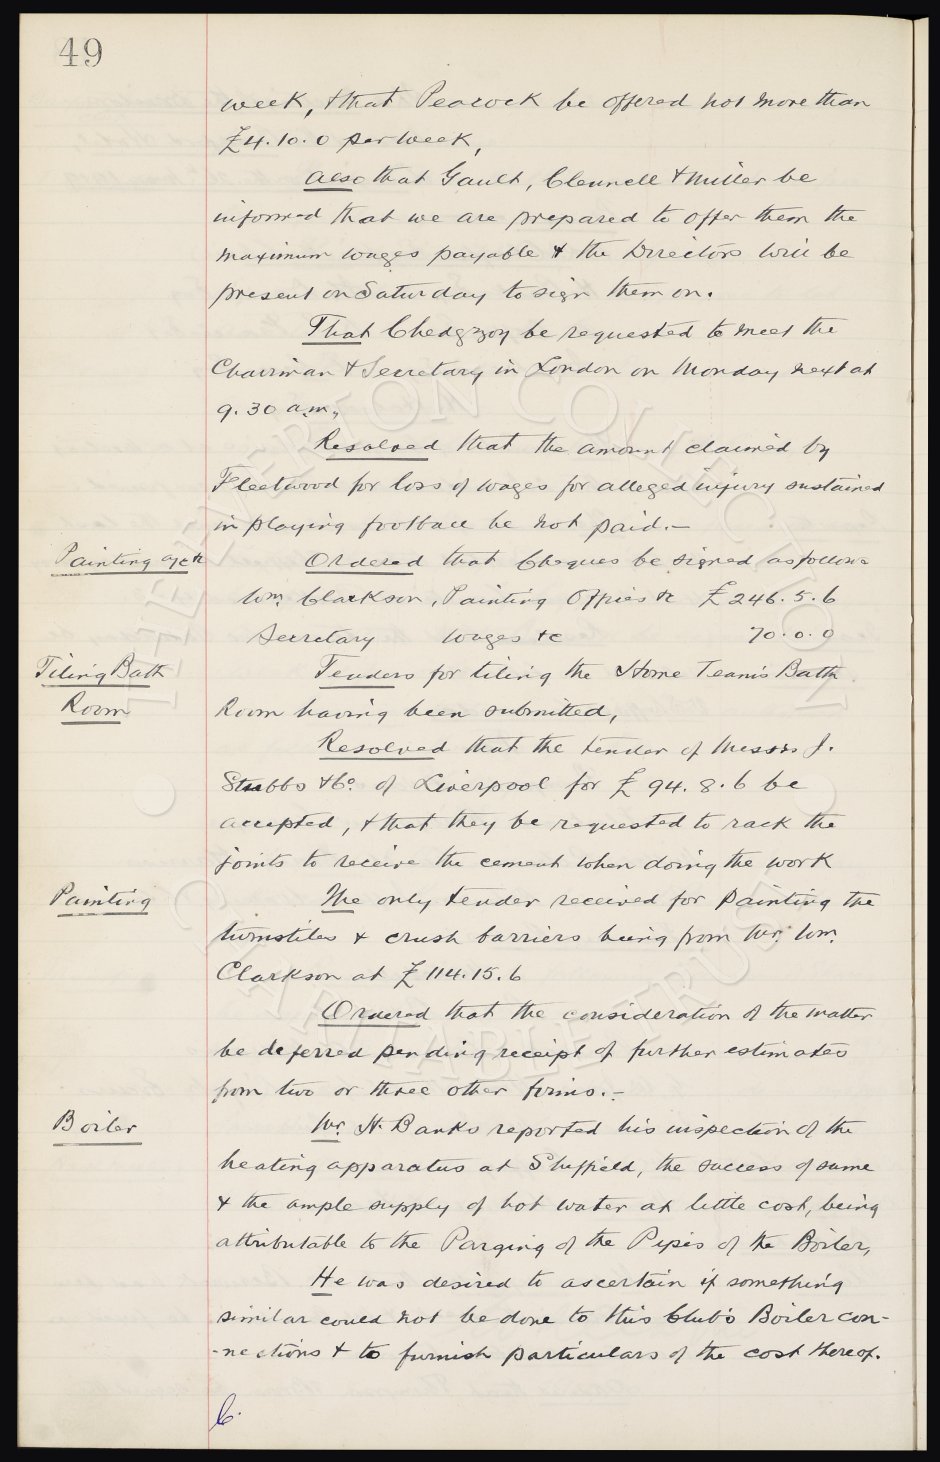 49
week, & that Peacock be offered not more than
£4.10.0 per week,
Also that Gault, Clennell & Miller be
informed that we are prepared to offer them the
maximum wages payable & the Directors will be
present on Saturday to sign them on.
That Chedgzoy be requested to meet the
Chairman & Secretary in London on Monday next at
9.30 a.m.
Resolved that the amount claimed by
Fleetwood for loss of wages for alleged injury sustained
in playing football be not paid.-
Painting a/c &c
Ordered that Cheques be signed as follows
Wm. Clarkson, Painting Offices &c £246.5.6
Secretary Wages &c 70.0.0
Tiling Bath
Room
Tenders for tiling the Home Team's Bath
Room having been submitted,
Resolved that the tender of Messrs J.
Stubbs & Co. of Liverpool for £94.8.6 be
accepted, & that they be requested to rack the
joints to receive the cement when doing the work
Painting
The only tender received for Painting the
turnstiles & crush barriers being from Mr. Wm.
Clarkson at £114.15.6
Ordered that the consideration of the matter
be deferred pending receipt of further estimates
from two or three other firms.-
Boiler
Mr. H. Banks reported his inspection of the
heating apparatus at Sheffield, the success of same
& the ample supply of hot water at little cost, being
attributable to the Parging of the Pipes of the Boiler,
He was desired to ascertain if something
similar could not be done to this Club's Boiler con-
-nections & to furnish particulars of the cost thereof.
C.